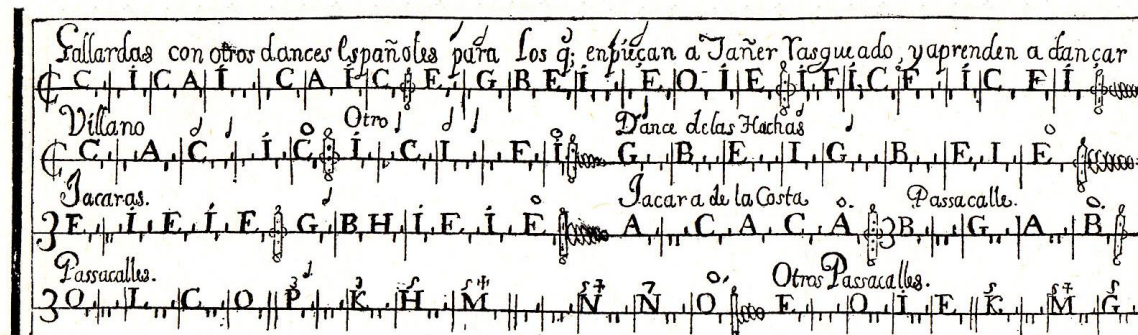 Gallardas con otros dances Españoles para los q; enpieçan a Tañer Rasgueado, y aprenden a dançar
C I C A I C A I C E G B E I E O I E I F I C F I C F I
Villano Otro Dance de las Hachas
C A C I C I C I F I G B E I G B E I E
Jacaras. Jacara de la Costa Passacalle.
3 E I E I E G B H I E I E A C A C A 3 B G A B
Passacalles. Otros Passacalles.
3 O L C O P K H M N N O E O I E K M G